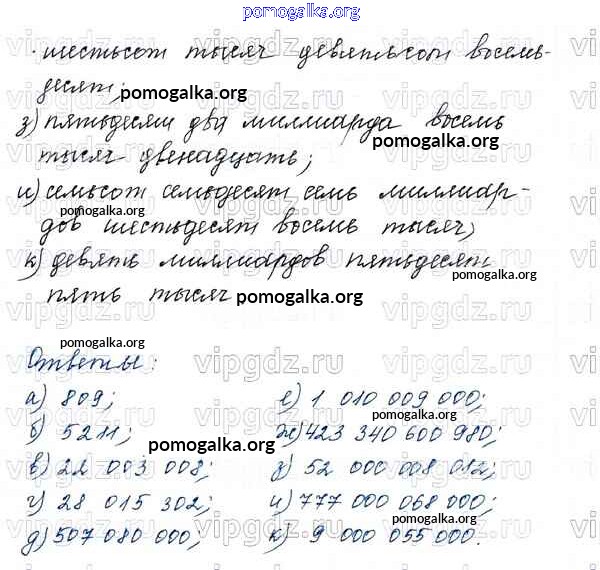 pomogalka.org
шестьсот тысяч девятьсот восемь-
десят;
pomogalka.org
з) пятьдесят два миллиарда восемь
pomogalka.org
тысяч двенадцать;
и) семьсот семьдесят семь миллиар-
pomogalka.org
дов шестьдесят восемь тысяч;
к) девять миллиардов пятьдесят
пять тысяч pomogalka.org
pomogalka.org
Ответы:
а) 809;
б) 5211;
в) 22 003 008;
г) 28 015 302;
д) 507 080 000;
е) 1 010 009 000;
ж) 423 340 600 980;
з) 52 000 008 012;
и) 777 000 068 000;
к) 9 000 055 000.
pomogalka.org
pomogalka.org
pomogalka.org
pomogalka.org
vipgdz.ru